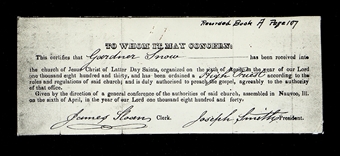 Recorded Book A Page 167
TO WHOM IT MAY CONCERN:
This certifies that Gardner Snow has been received into
the church of Jesus Christ of Latter Day Saints, organized on the sixth of April, in the year of our Lord
one thousand eight hundred and thirty, and has been ordained a High Priest according to the
rules and regulations of said church; and is duly authorized to preach the gospel, agreeably to the authority
of that office.
Given by the direction of a general conference of the authorities of said church, assembled in NAUVOO, Ill.
on the sixth of April, in the year of our Lord one thousand eight hundred and forty.
James Sloan Clerk. Joseph Smith President.